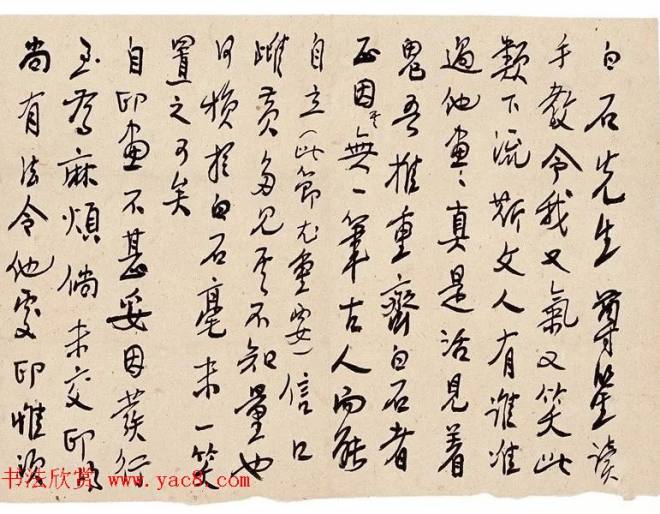 白石先生尊鉴读
手教令我又氣又笑此
類下流斯文人有谁准
過他畫畫真是活見着
鬼吾推重齊白石者
正因其無一筆古人而能
自立（此節尤重要）信口
雌黄多見其不知量也
何損于白石毫末一笑
置之可矣
自印畫不甚妥因發行
至为麻烦倘未交印
尚有法令他处印惟
书法欣赏 www.yac8.com